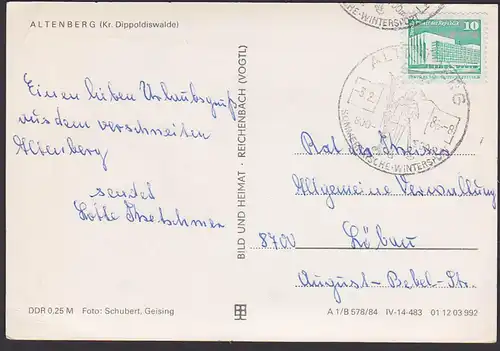 ALTENBERG (Kr. Dippoldiswalde)
Einen lieben Urlaubsgruß
aus dem verschneiten
Altenberg
sendet
Lotte Kretschmer
BILD UND HEIMAT · REICHENBACH (VOGTL)
10
ALTENBERG
800-
SOMMERFRISCHE-WINTERSPORT
Rat des Kreises
Allgemeine Verwaltung
8700 Löbau
August-Bebel-Str.
DDR 0,25 M Foto: Schubert, Geising
A 1/B 578/84 IV-14-483 01 12 03 992